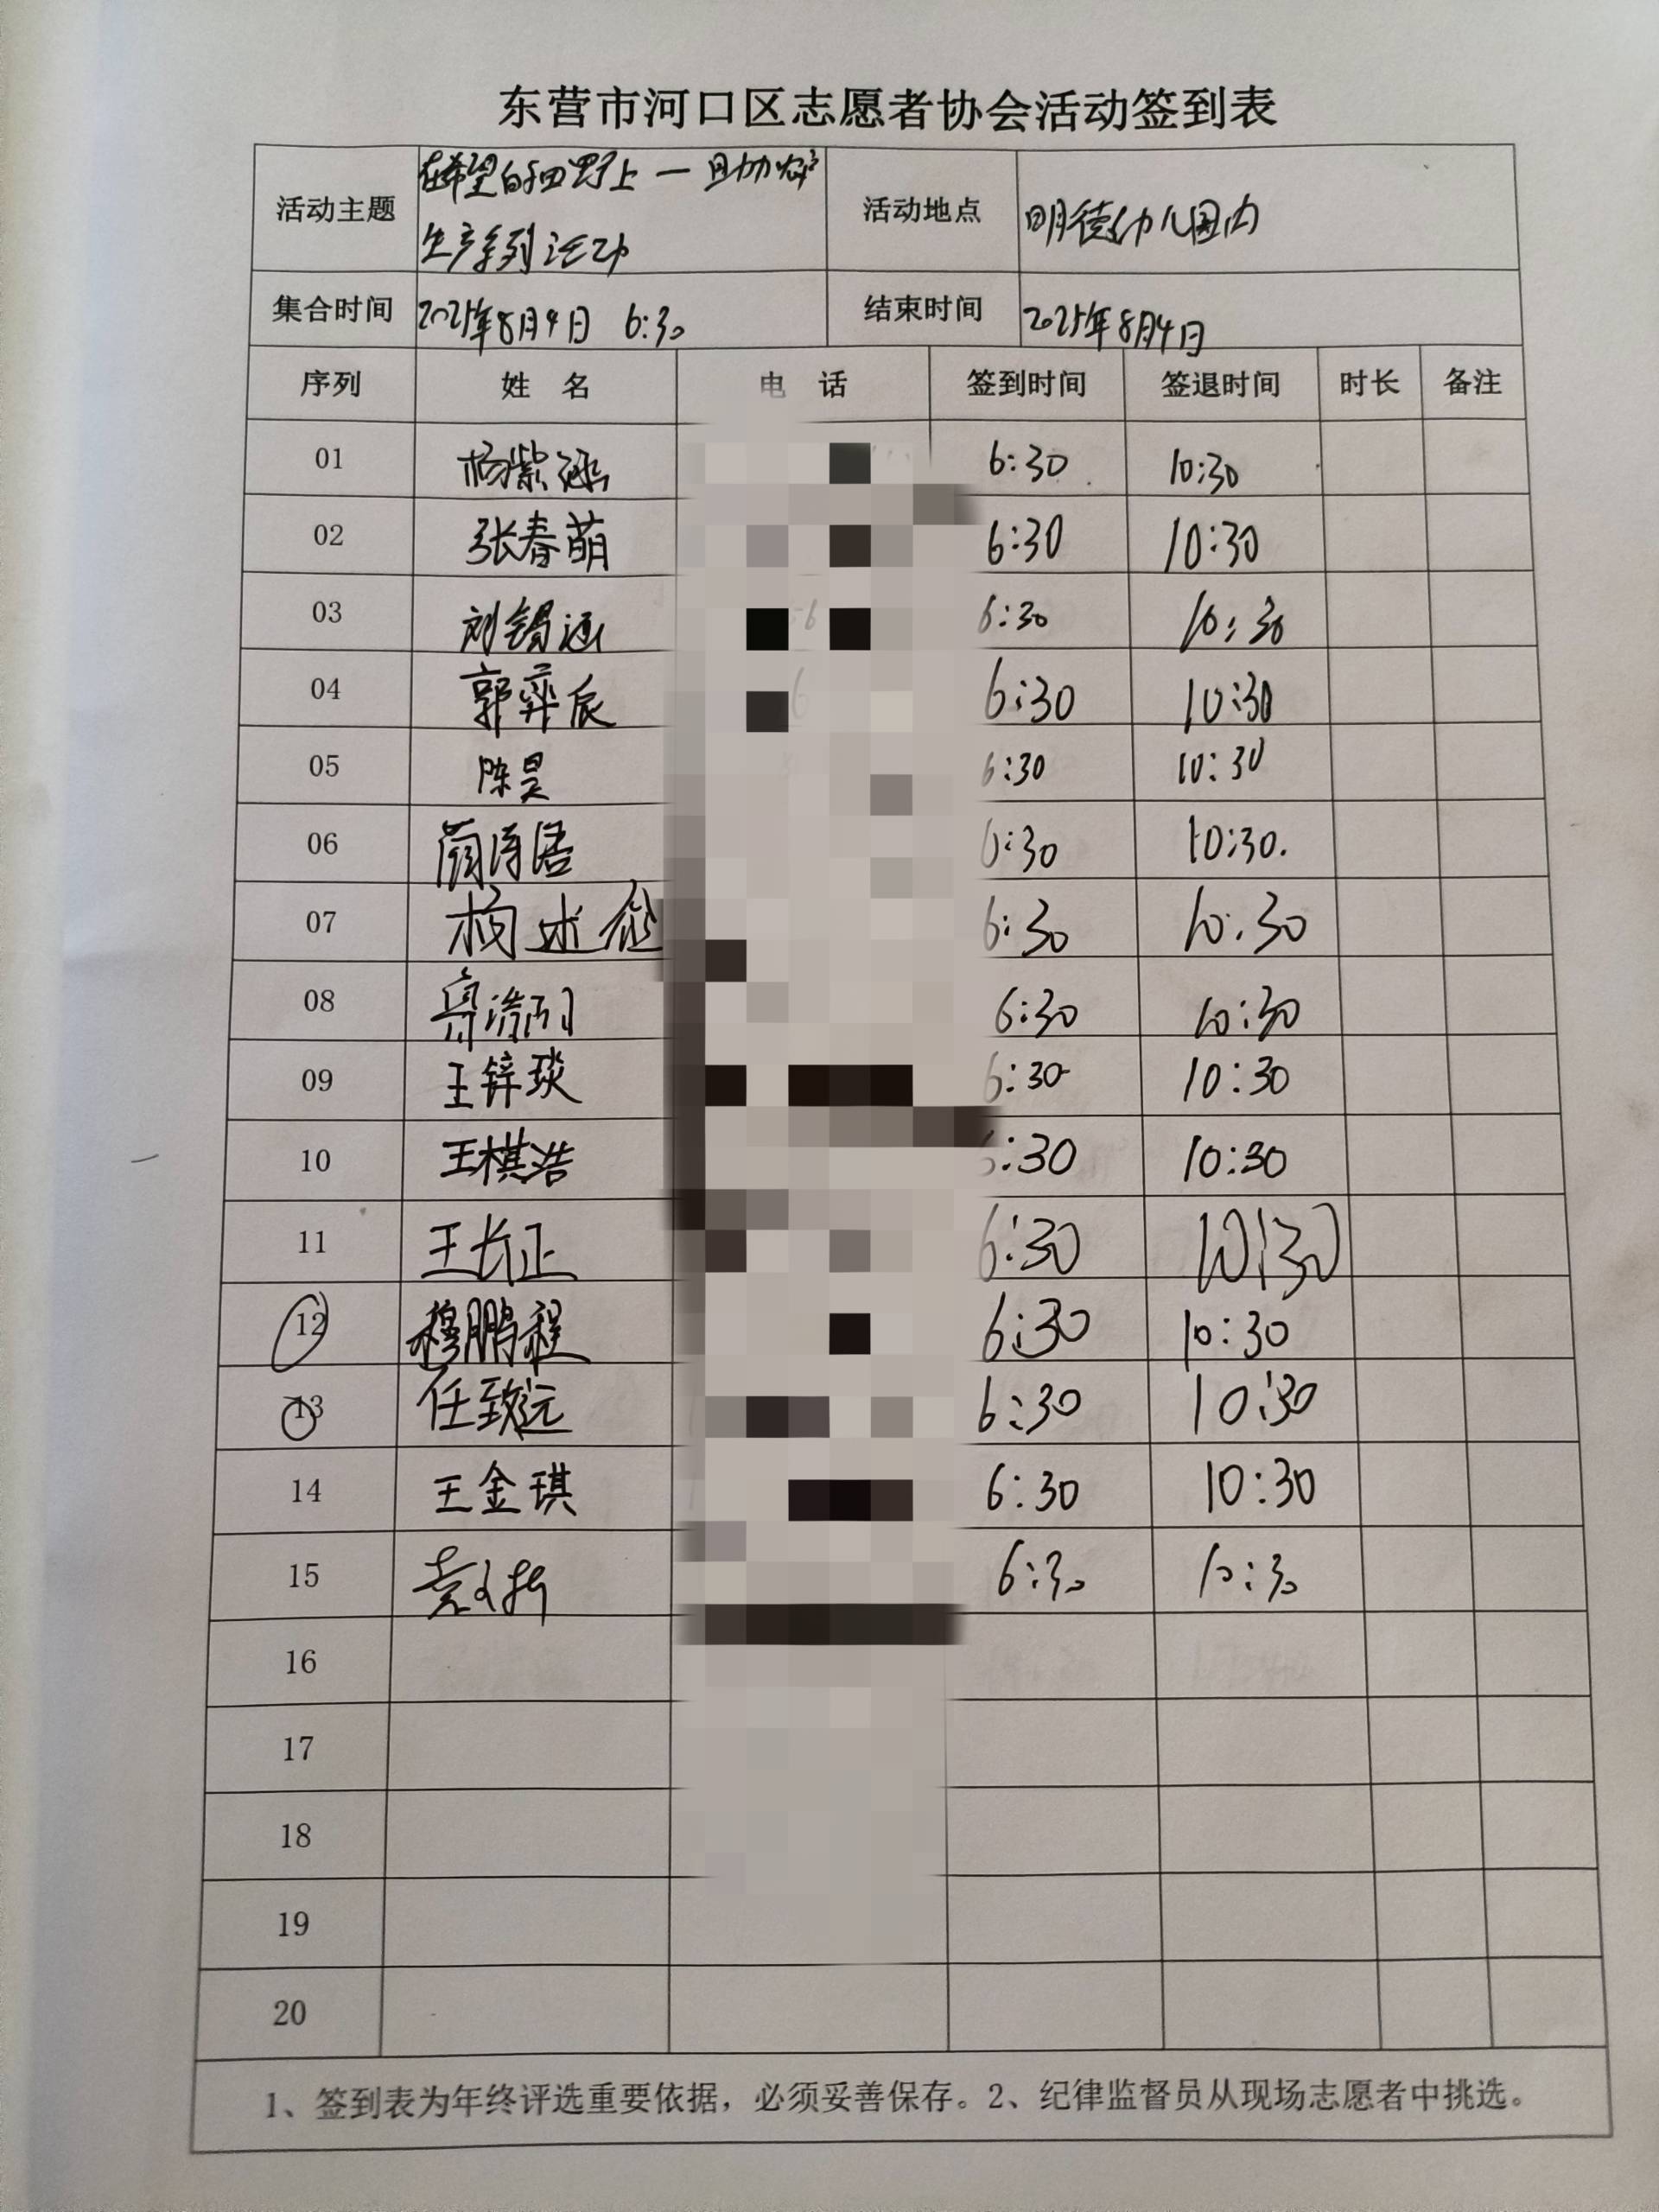 东营市河口区志愿者协会活动签到表
活动主题 在希望的田野上一助力农户 活动地点 明德幼儿园内
生产系列活动
集合时间 2025年8月4日 6:30 结束时间 2025年8月4日
序列 姓 名 电 话 签到时间 签退时间 时长 备注
01 杨紫涵 6:30 10:30
02 张春萌 6:30 10:30
03 刘锡涵 6:30 10:30
04 郭弈辰 6:30 10:30
05 陈昊 6:30 10:30
06 :30 10:30.
07 杨述 6:30 10:30
08 6:30 10:30
09 王锌琰 6:30 10:30
10 王棋浩 :30 10:30
11 王长正 6:30 10:30
12 穆鹏程 6:30 10:30
13 任致远 6:30 10:30
14 王金琪 6:30 10:30
15 6:30 10:30
16
17
18
19
20
1、签到表为年终评选重要依据，必须妥善保存。2、纪律监督员从现场志愿者中挑选。